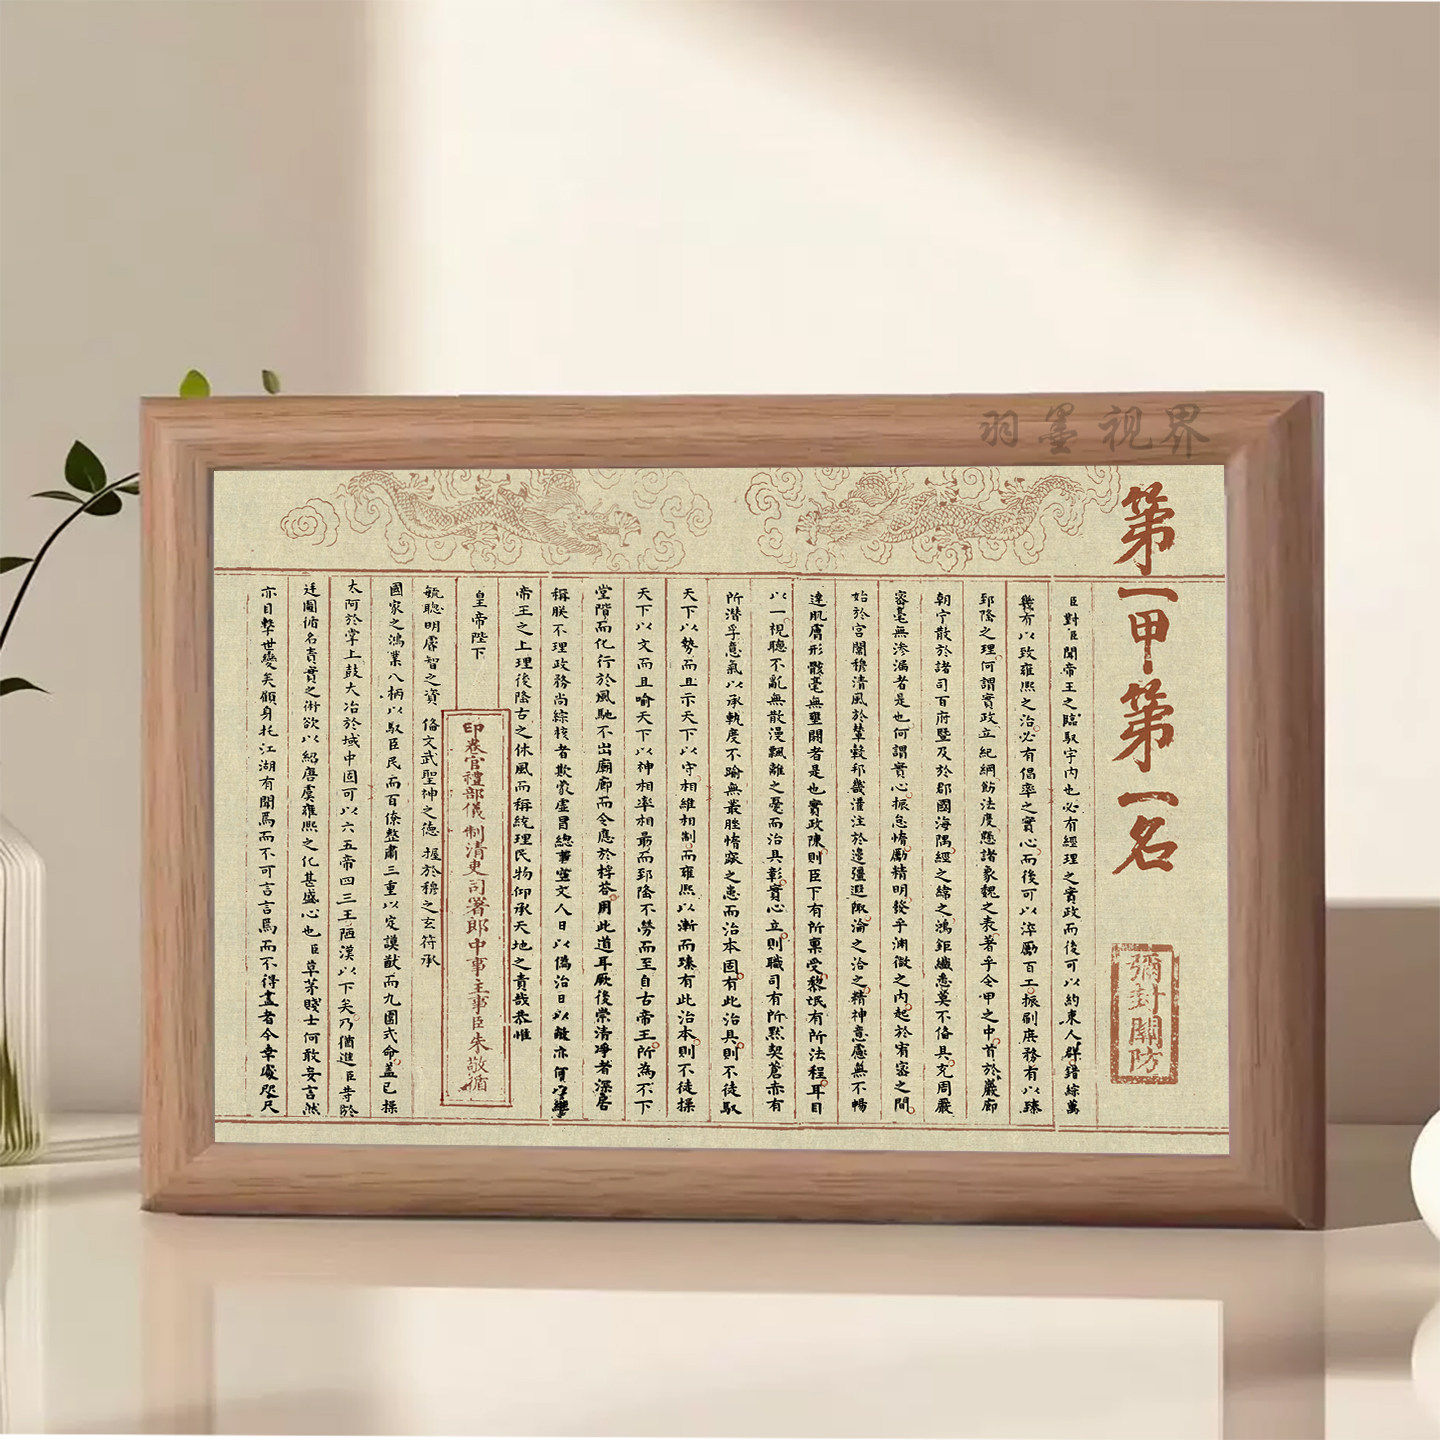 羽墨視界
第一甲第一名
彌封關防
臣對臣聞帝王之臨馭宇內也必有經理之實政而後可以約束人群錯綜萬
幾有以致雍熙之治必有倡率之實心而後可以淬勵百工振刷庶務有以臻
郅隆之理何謂實政立紀綱飭法度懸諸象魏之表著乎令甲之中首於巖廊
朝宁散於諸司百府暨及於郡國海隅經之緯之鴻鉅纖悉莫不備具充周嚴
密毫無滲漏者是也何謂實心振怠惰勵精明發乎淵微之內起於宥密之間
始於宮闈穆清風於輦轂邦畿灌注於邊疆遐陬淪之洽之精神意慮無不暢
達肌膚形骸毫無壅閼者是也實政陳則臣下有所稟受黎氓有所法程耳目
以一視聽不亂無散漫飄離之憂而治具彰實心立則職司有所默契蒼赤有
所潛孚意氣以承軌度不踰無叢脞惰窳之患而治本固有此治具則不徒馭
天下以勢而且示天下以守相維相制而雍熙以漸而臻有此治本則不徒操
天下以文而且喻天下以神相率相勗而郅隆不勞而至自古帝王所為不下
堂階而化行於風馳不出廟廊而令應於桴荅用此道耳厥後崇清凈者深居
稱朕不理政務尚綜核者欺蒙虛冒總事空文人日以偽治日以敝亦何以繼
帝王之上理後隆古之休風而稱統理民物仰承天地之責哉恭惟
皇帝陛下
印卷官禮部儀制清吏司署郎中事主事臣朱敬循
毓聰明睿智之資 備文武聖神之德 握於穆之玄符承
國家之鴻業八柄以馭臣民而百僚整肅三重以定謨猷而九圍式命蓋已操
太阿於掌上鼓大冶於域中固可以六五帝四三王陋漢以下矣乃猶進臣等於
廷圖循名責實之術欲以紹唐虞雍熙之化甚盛心也臣草茅賤士何敢妄言然
亦目擊世變矣顧身托江湖有聞焉而不可言言焉而不得盡者今幸處咫尺